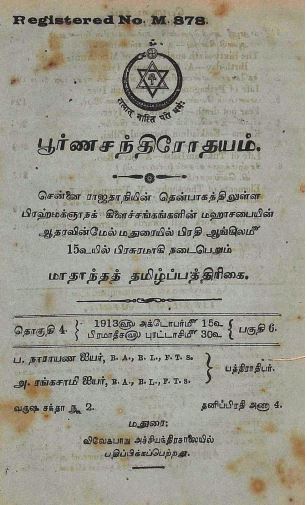 Registered No. M. 878.
सत्यात् नास्ति परो धर्मः
பூர்ணசந்திரோதயம்.
சென்னை ராஜதானியின் தென்பாகத்திலுள்ள
பிரஹ்மக்ஞாநக் கிளைச்சங்கங்களின் மஹாசபையின்
ஆதரவின்மேல் மதுரையில் பிரதி ஆங்கிலமீ
15௳யில் பிரசுரமாகி நடைபெறும்
மாதாந்தத் தமிழ்ப்பத்திரிகை.
தொகுதி 4. { 1913௵ அக்டோபர்௴ 15௳ } பகுதி 6.
பிரமாதீச௵ புரட்டாசி௴ 30௳
ப. நாராயண ஐயர், B. A., B. L., F. T. S.
அ. ரங்கசாமி ஐயர், B. A., B. L., F. T. S. } பத்திராதிபர்.
வருஷ சந்தா ரூ 2. தனிப்பிரதி அணா 4.
மதுரை:
விவேகபாநு அச்சியந்திரசாலையில்
பதிப்பிக்கப்பெற்றது.